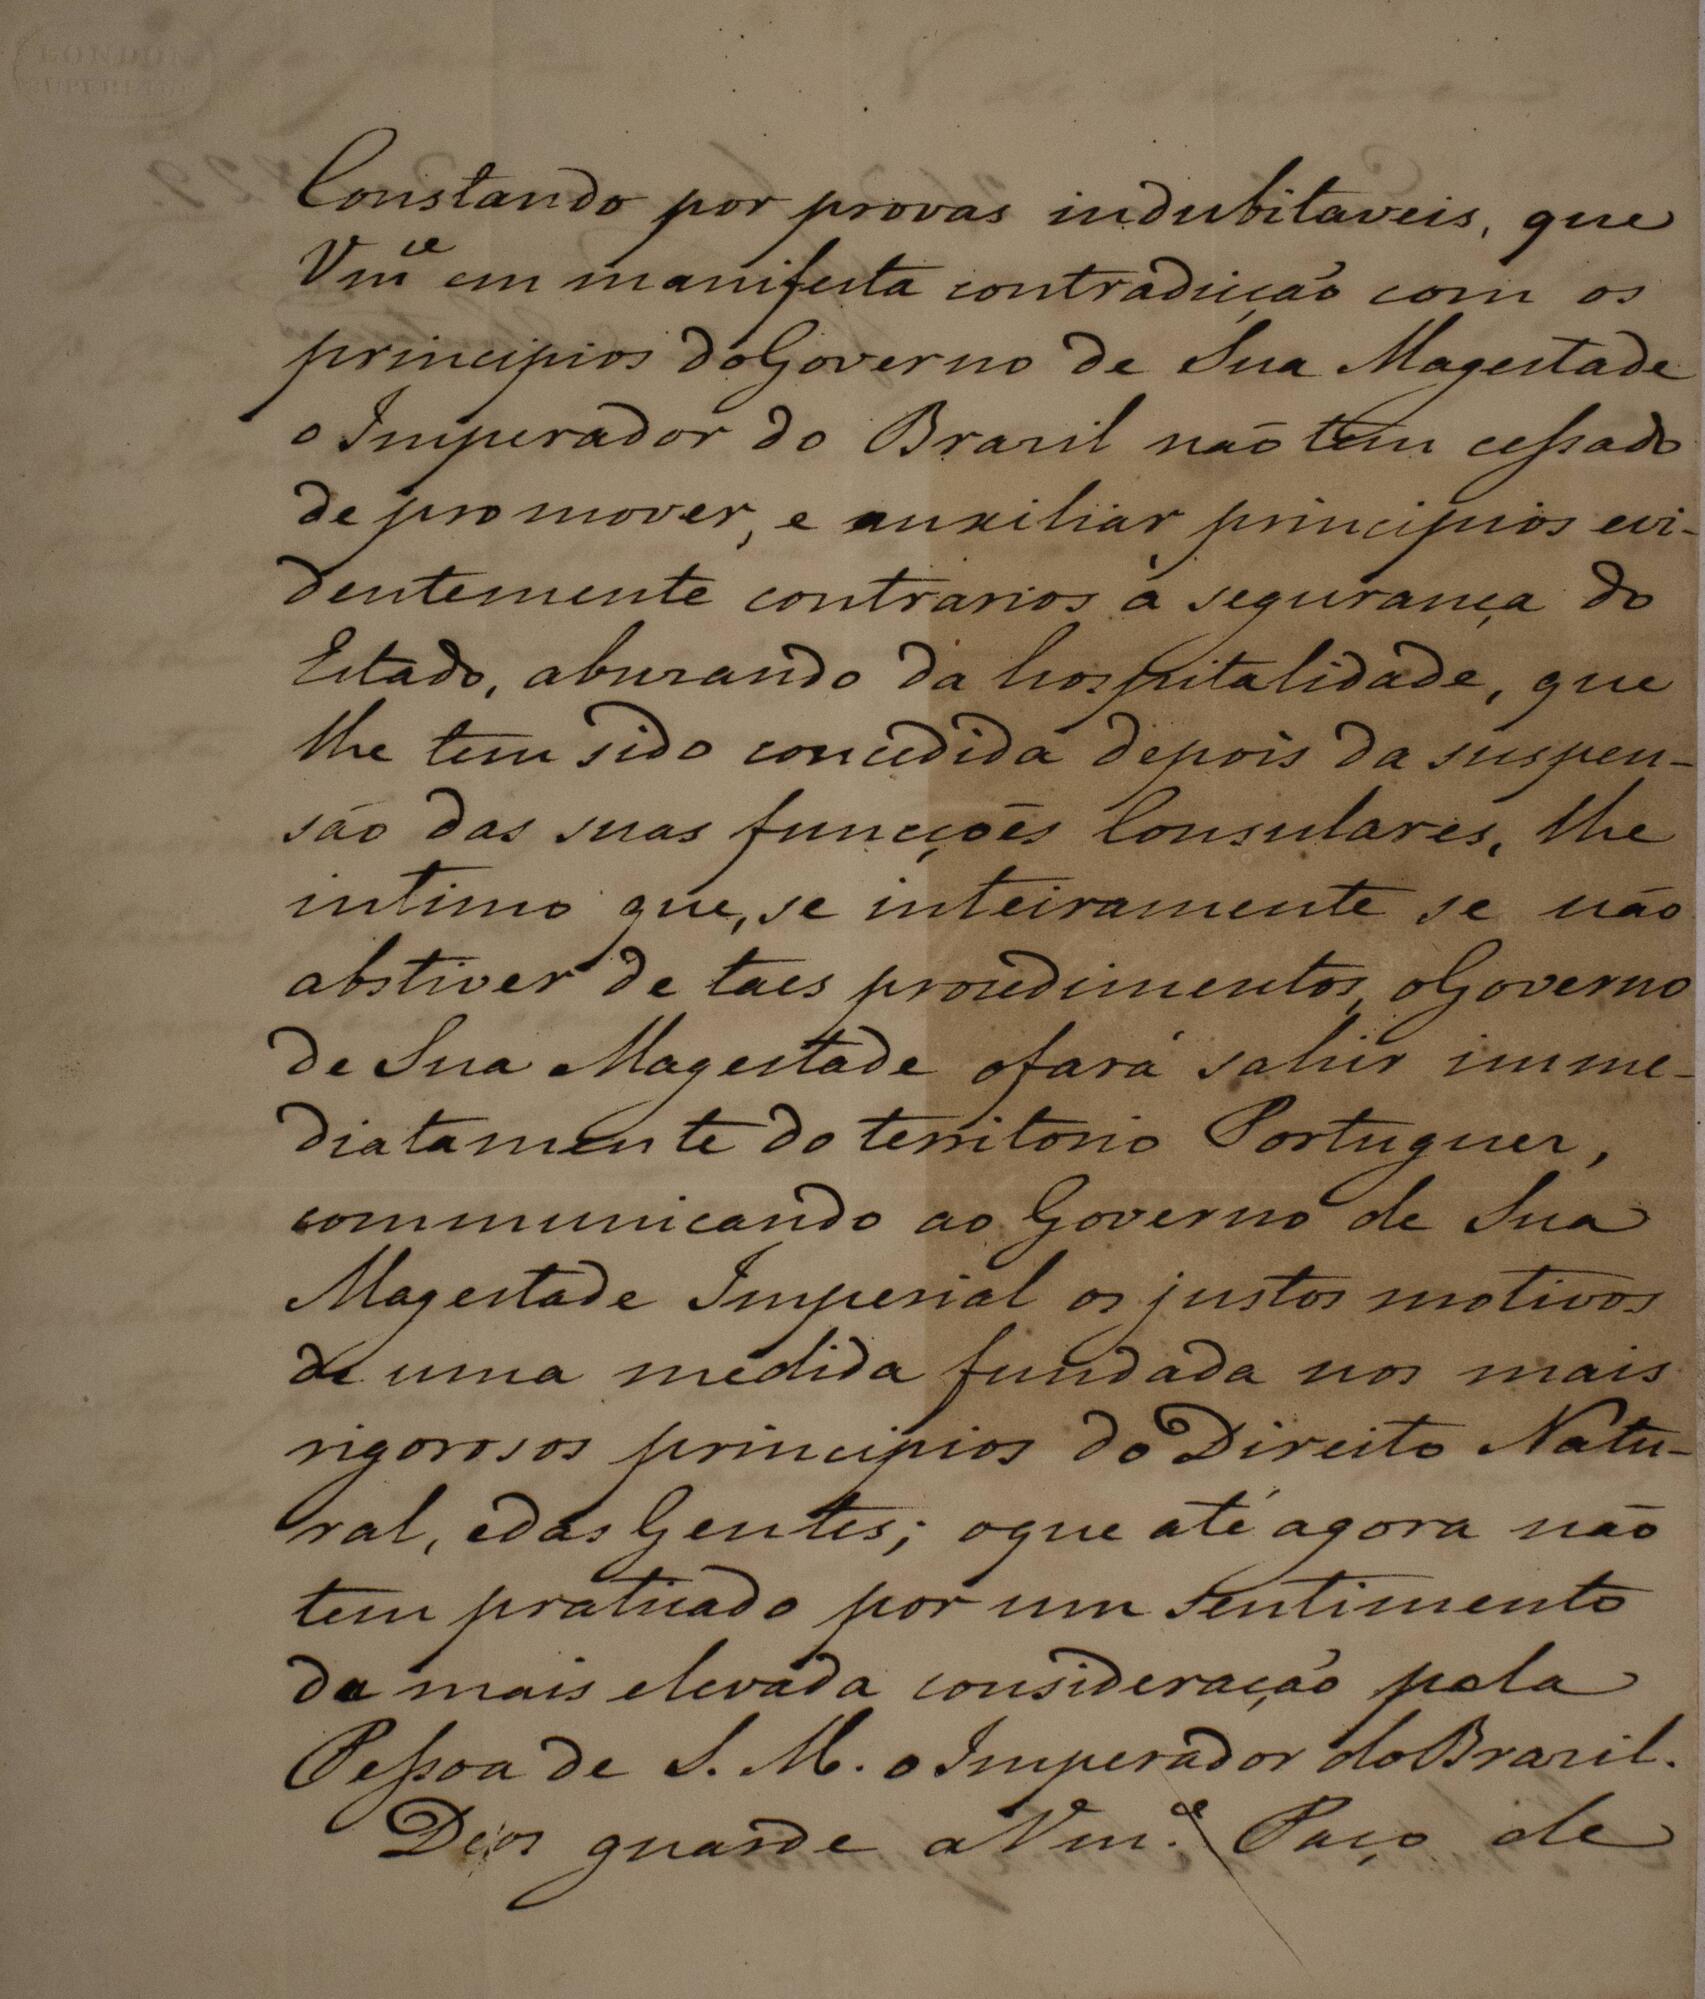 LONDON
SUPERFINE
Constando por provas indubitaveis, que
Vm.ce em manifesta contradicção com os
principios do Governo de Sua Magestade
o Imperador do Brazil não tem cessado
de promover, e auxiliar principios evi-
dentemente contrarios à segurança do
Estado, abuzando da hospitalidade, que
lhe tem sido concedida depois da suspen-
são das suas funcções Consulares, lhe
intimo que, se inteiramente se não
abstiver de taes procedimentos, o Governo
de Sua Magestade o fará sahir imme-
diatamente do territorio Portuguez,
communicando ao Governo de Sua
Magestade Imperial os justos motivos
de uma medida fundada nos mais
rigorosos principios do Direito Natu-
ral, e das Gentes; o que até agora não
tem praticado por um sentimento
da mais elevada consideração pela
Pessoa de S. M. o Imperador do Brazil.
Deos guarde a Vm.ce Paço de